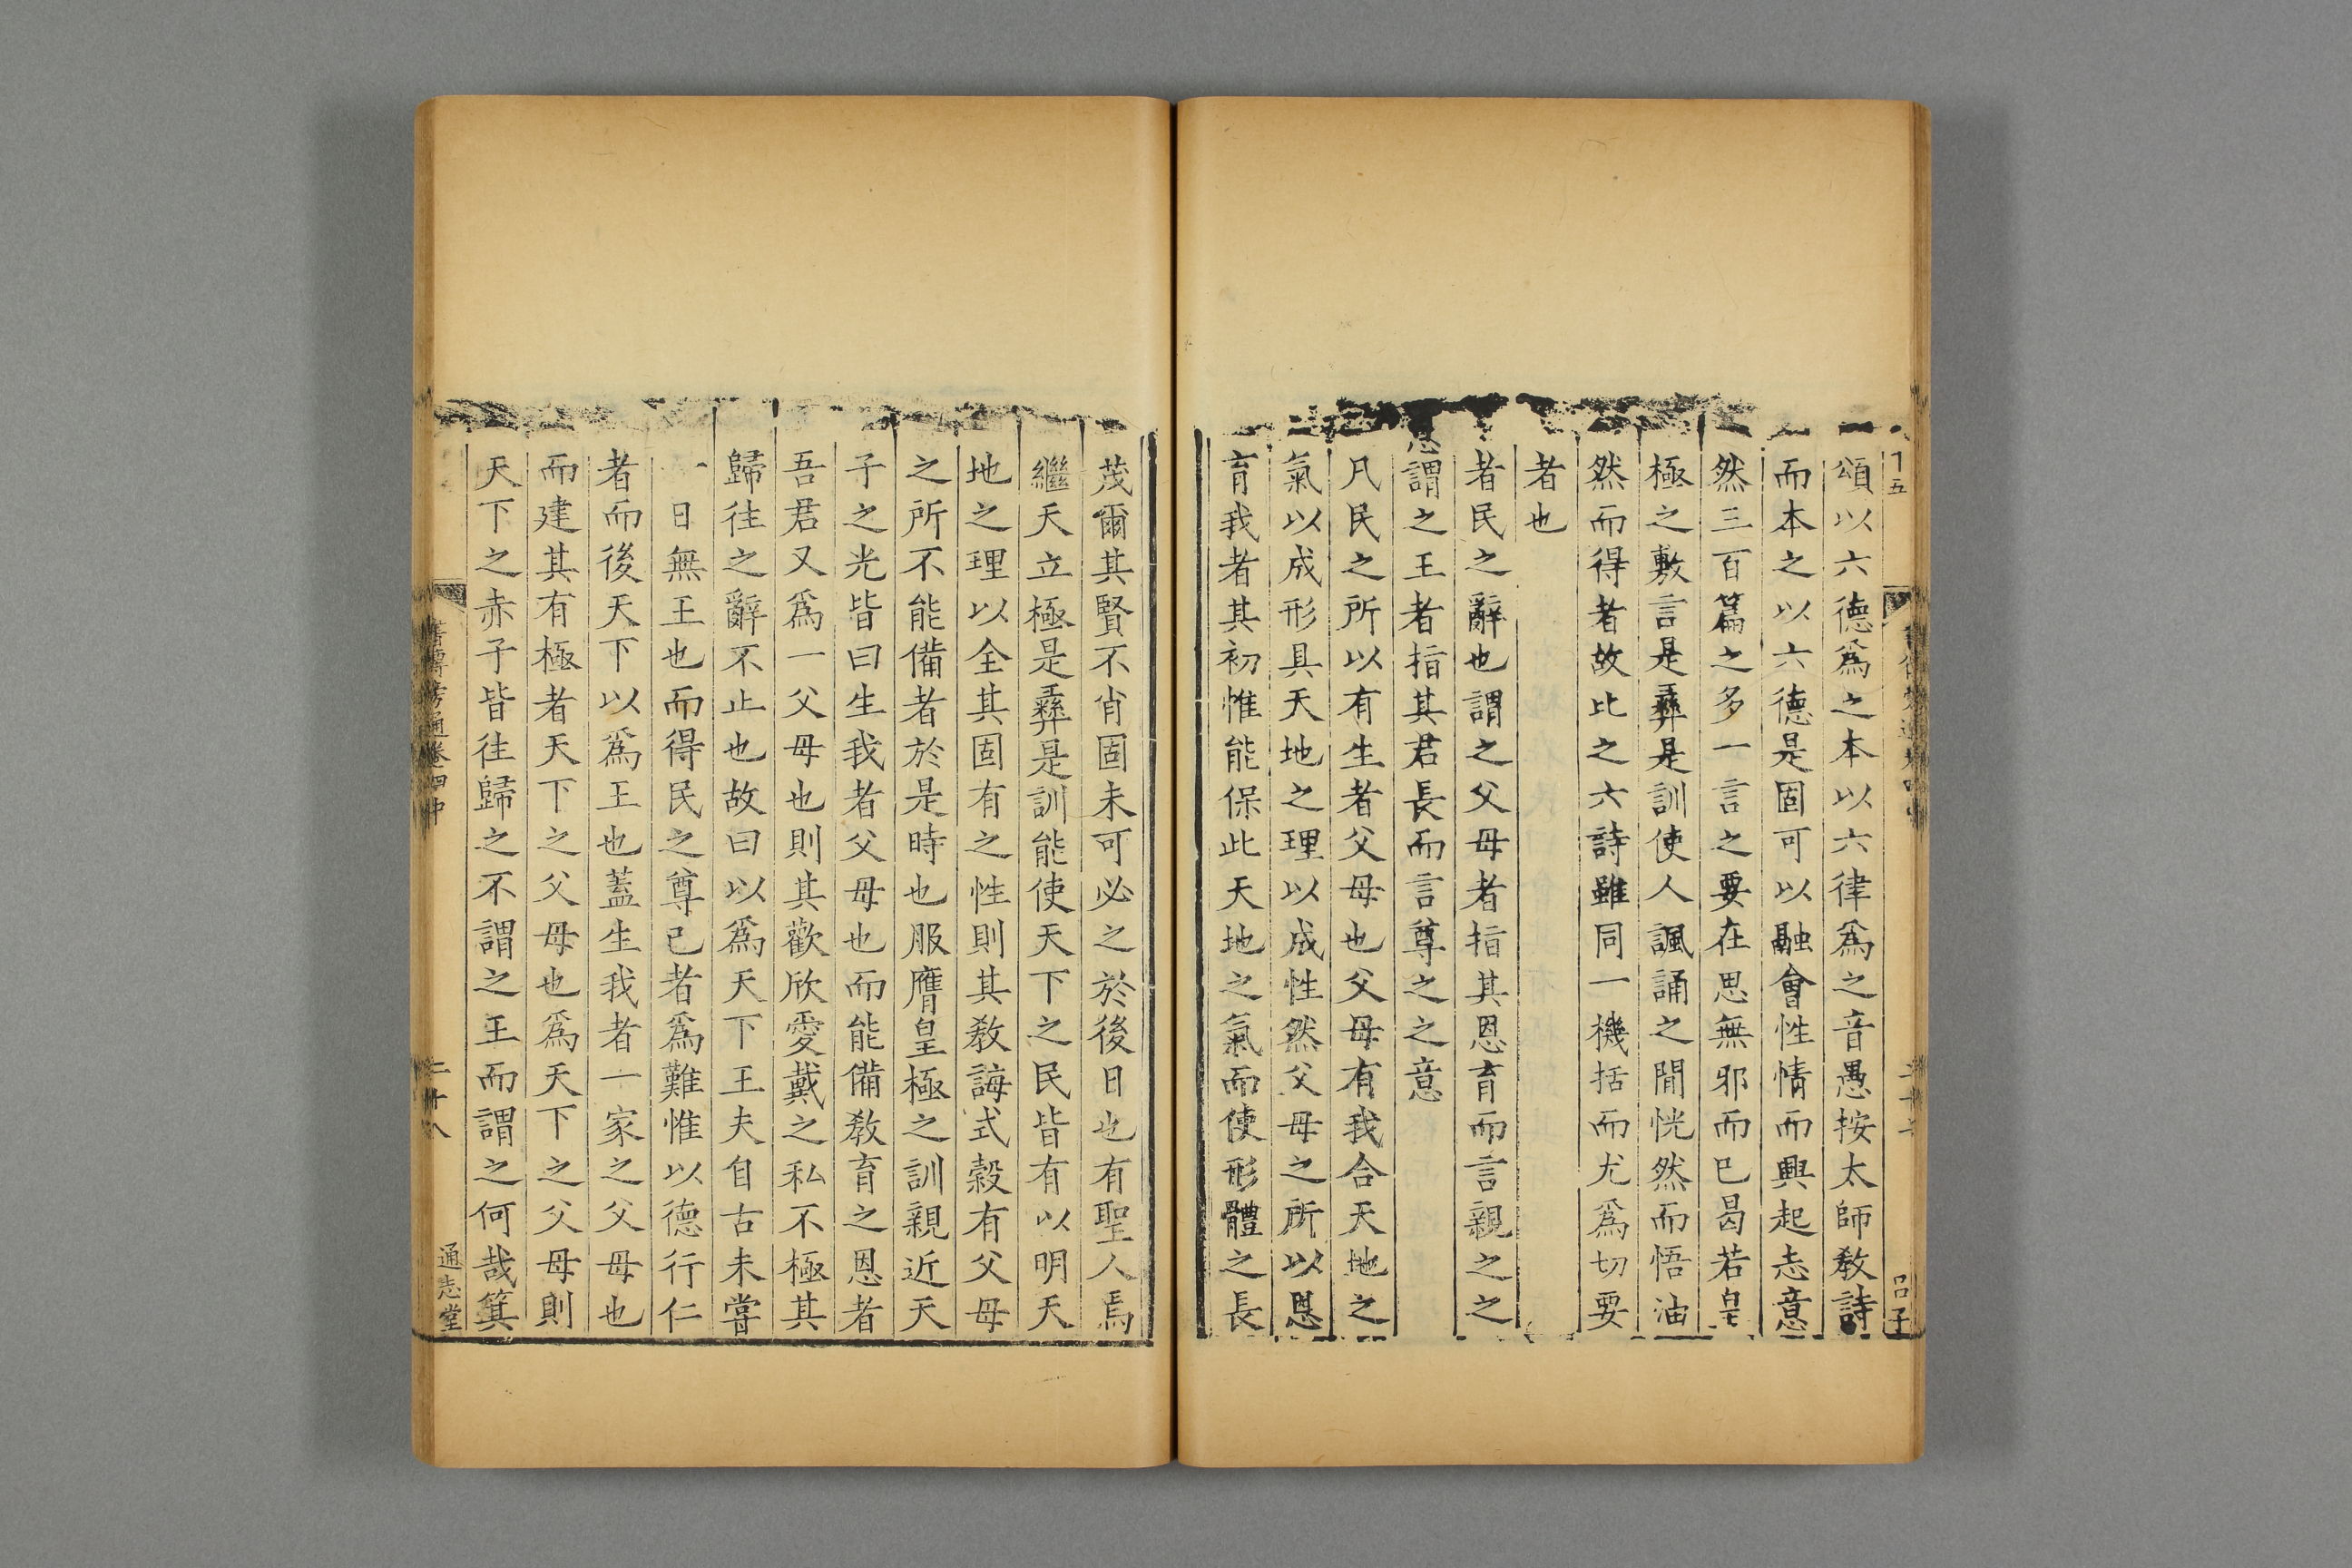 頌以六德爲之本以六律爲之音愚按太師敎詩
而本之以六德是固可以融會性情而興起志意
然三百篇之多一言之要在思無邪而已曷若皇
極之敷言是彞是訓使人諷誦之間恍然而悟油
然而得者故比之六詩雖同一機括而尤爲切要
者也
者民之辭也謂之父母者指其恩育而言親之之
謂之王者指其君長而言尊之之意
凡民之所以有生者父母也父母有我合天地之
氣以成形具天地之理以成性然父母之所以恩
育我者其初惟能保此天地之氣而使形體之長
茂爾其賢不肖固未可必之於後日也有聖人焉
繼天立極是彞是訓能使天下之民皆有以明天
地之理以全其固有之性則其敎誨式穀有父母
之所不能備者於是時也服膺皇極之訓親近天
子之光皆曰生我者父母也而能備敎育之恩者
吾君又爲一父母也則其歡欣愛戴之私不極其
歸往之辭不止也故曰以爲天下王夫自古未嘗
一日無王也而得民之尊已者爲難惟以德行仁
者而後天下以爲王也蓋生我者一家之父母也
而建其有極者天下之父母也爲天下之父母則
天下之赤子皆往歸之不謂之王而謂之何哉箕
書傳旁通卷四中
二十八
通志堂